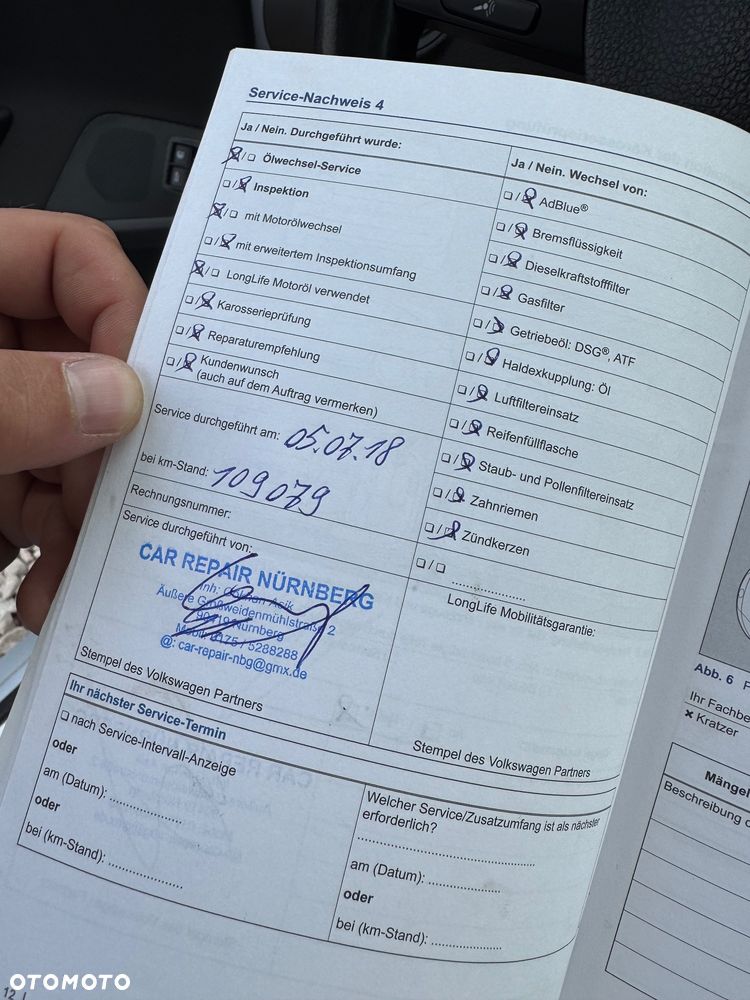 Service-Nachweis 4
Ja / Nein. Durchgeführt wurde:
☒/☐ Ölwechsel-Service
☐/☒ Inspektion
☒/☐ mit Motorölwechsel
☐/☒ mit erweitertem Inspektionsumfang
☒/☐ LongLife Motoröl verwendet
☐/☒ Karosserieprüfung
☐/☒ Reparaturempfehlung
☐/☒ Kundenwunsch
(auch auf dem Auftrag vermerken)
Service durchgeführt am: 05.07.18
bei km-Stand: 109079
Rechnungsnummer:
Service durchgeführt von:
CAR REPAIR NÜRNBERG
Inh:
Äußere Großweidenmühlstraße 2
Nürnberg
Mobil: 0175 / 5288288
@: car-repair-nbg@gmx.de
Stempel des Volkswagen Partners
Ja / Nein. Wechsel von:
☐/☒ AdBlue®
☐/☒ Bremsflüssigkeit
☐/☒ Dieselkraftstofffilter
☐/☒ Gasfilter
☐/☒ Getriebeöl: DSG®, ATF
☐/☒ Haldexkupplung: Öl
☐/☒ Luftfiltereinsatz
☐/☒ Reifenfüllflasche
☐/☒ Staub- und Pollenfiltereinsatz
☐/☒ Zahnriemen
☐/☒ Zündkerzen
☐/☐ ....................
LongLife Mobilitätsgarantie:
Stempel des Volkswagen Partners
Ihr nächster Service-Termin
☐ nach Service-Intervall-Anzeige
oder
am (Datum): ....................
oder
bei (km-Stand): ....................
Welcher Service/Zusatzumfang ist als nächster
erforderlich?
........................................
am (Datum): ....................
oder
bei (km-Stand): ....................
12
Abb. 6
Ihr Fachbe
× Kratzer
Mängel
Beschreibung
OTOMOTO